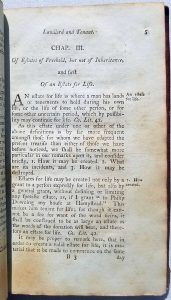 Landlord and Tenant. 5
CHAP. III.
Of Estates of Freehold, but not of Inheritance,
and first
Of an Estate for Life.
AN estate for life is where a man has lands An estate
or tenements to hold during his own for life.
life, or the life of some other person, or for
some other uncertain period, which by possibi-
lity may continue for life. Co. Lit. 42.
As this estate under one or other of the
above definitions is by far more frequent
although that for
before noticed, we shall be somewhat more
particular in our remarks upon it, and consider-
1. How it may be created 2. What
are its incidents, and 3. How it may be
destroyed.
Estates for life may be created not only by a 1. How
grant to a person expressly for life, but also by created.
a general grant, without defining or limiting
any specific estate, as, if I grant "to Peter
Downing my house at Hampstead." This
makes him tenant for life; for though it can-
not be a fee for want of the word heirs, it
shall be construed to be as large an estate as
the words of the donation will bear, and there-
fore an estate for life. Co. Lit. 42.
It may be proper to remark here, that in
order to create a valid estate for life, it is essen-
tial that it be made to commence on the
B 3 day